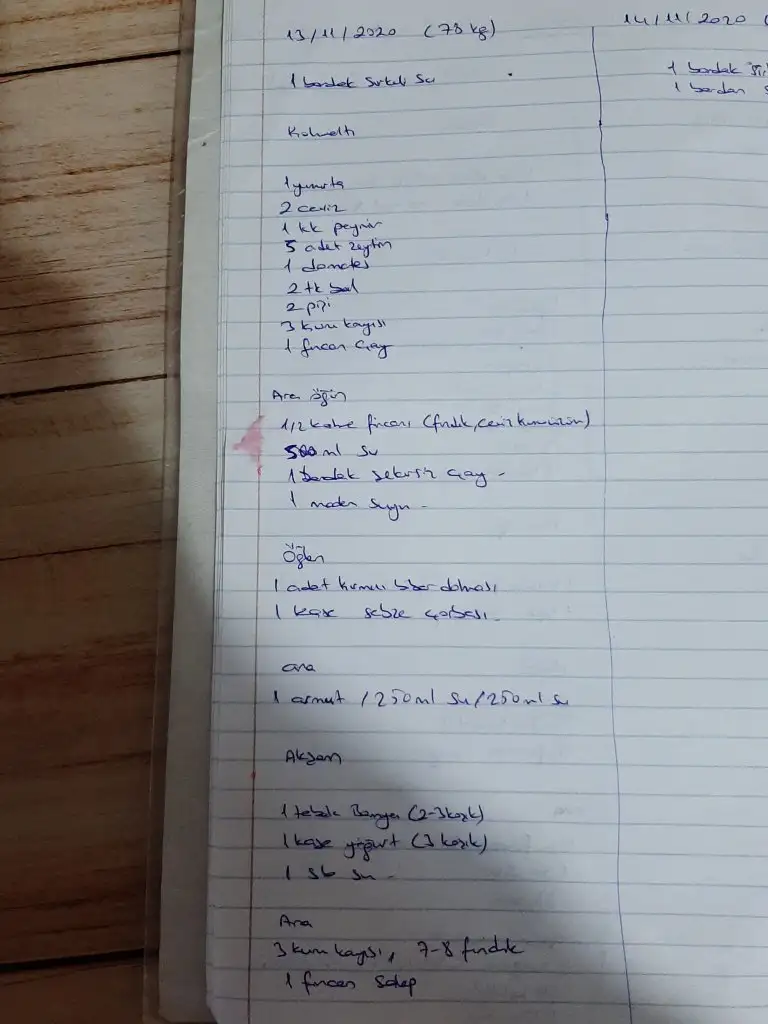 13/11/2020 (78 kg)
1 bardak sirkeli su
Kahvaltı
1 yumurta
2 ceviz
1 kk peynir
5 adet zeytin
1 domates
2 tk bal
2 pişi
3 kuru kayısı
1 fincan çay
Ara öğün
1/2 kahve fincanı (fındık, ceviz kuru üzüm)
500 ml su
1 bardak şekersiz çay -
1 maden suyu -
Öğlen
1 adet kırmızı biber dolması
1 kase sebze çorbası -
ara
1 armut / 250 ml su / 250 ml su
Akşam
1 tabak Bamya (2-3 kaşık)
1 kase yoğurt (3 kaşık)
1 sb su -
Ara
3 kuru kayısı, 7-8 fındık
1 fincan salep
14/11/2020 (
1 bardak
1 bardak